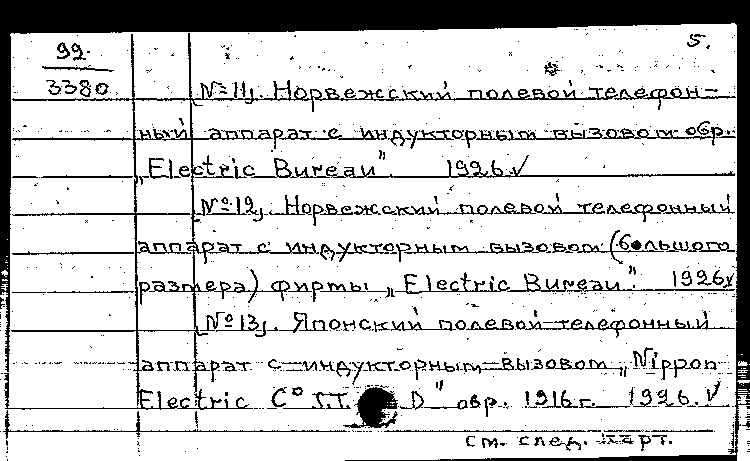 99.
5.
3380
№ 11,. Норвежский полевой телефон-
ный аппарат с индукторным вызовом обр.
„Electric Bureau" 1926. √
№ 12,. Норвежский полевой телефонный
аппарат с индукторным вызовом (большого
размера) фирмы „Electric Bureau". 1926 √
№ 13,. Японский полевой телефонный
аппарат с индукторным вызовом „Nippon
Electric C° S.T. D" обр. 1916 г. 1926. √
см. след. карт.